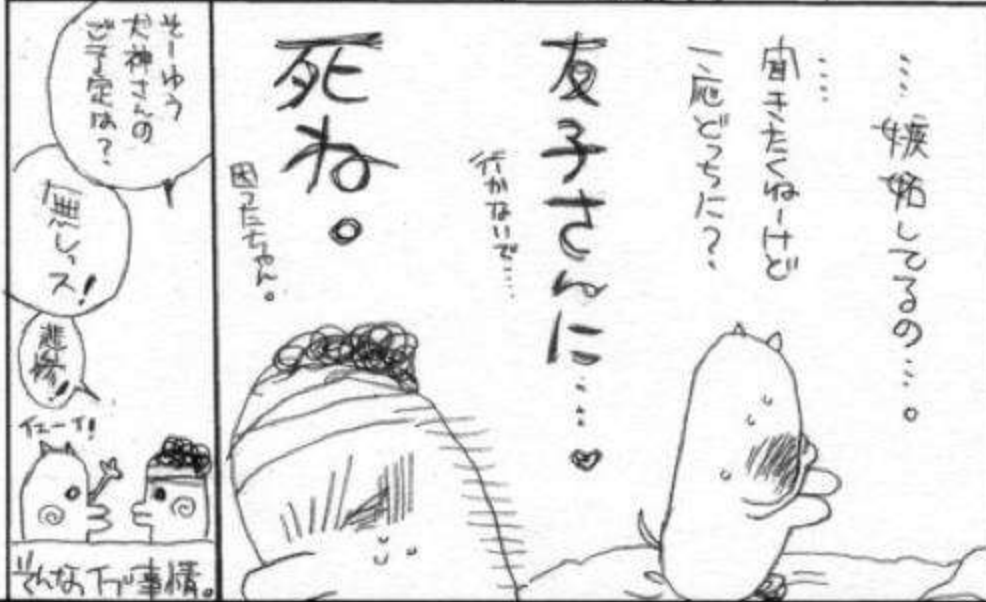 ……嫉妬してるの……。
……
聞きたくねーけど
一応どっちに？
友子さんに……♡
行かないで……
死ね。
困ったちゃん。
そーゆう
犬神さんの
ご予定は？
無しっス！
悲惨！
イエーイ！
そんなイブ事情。